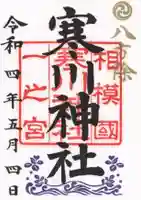 八方除
寒川神社
相模國
一之宮
令和四年五月四日